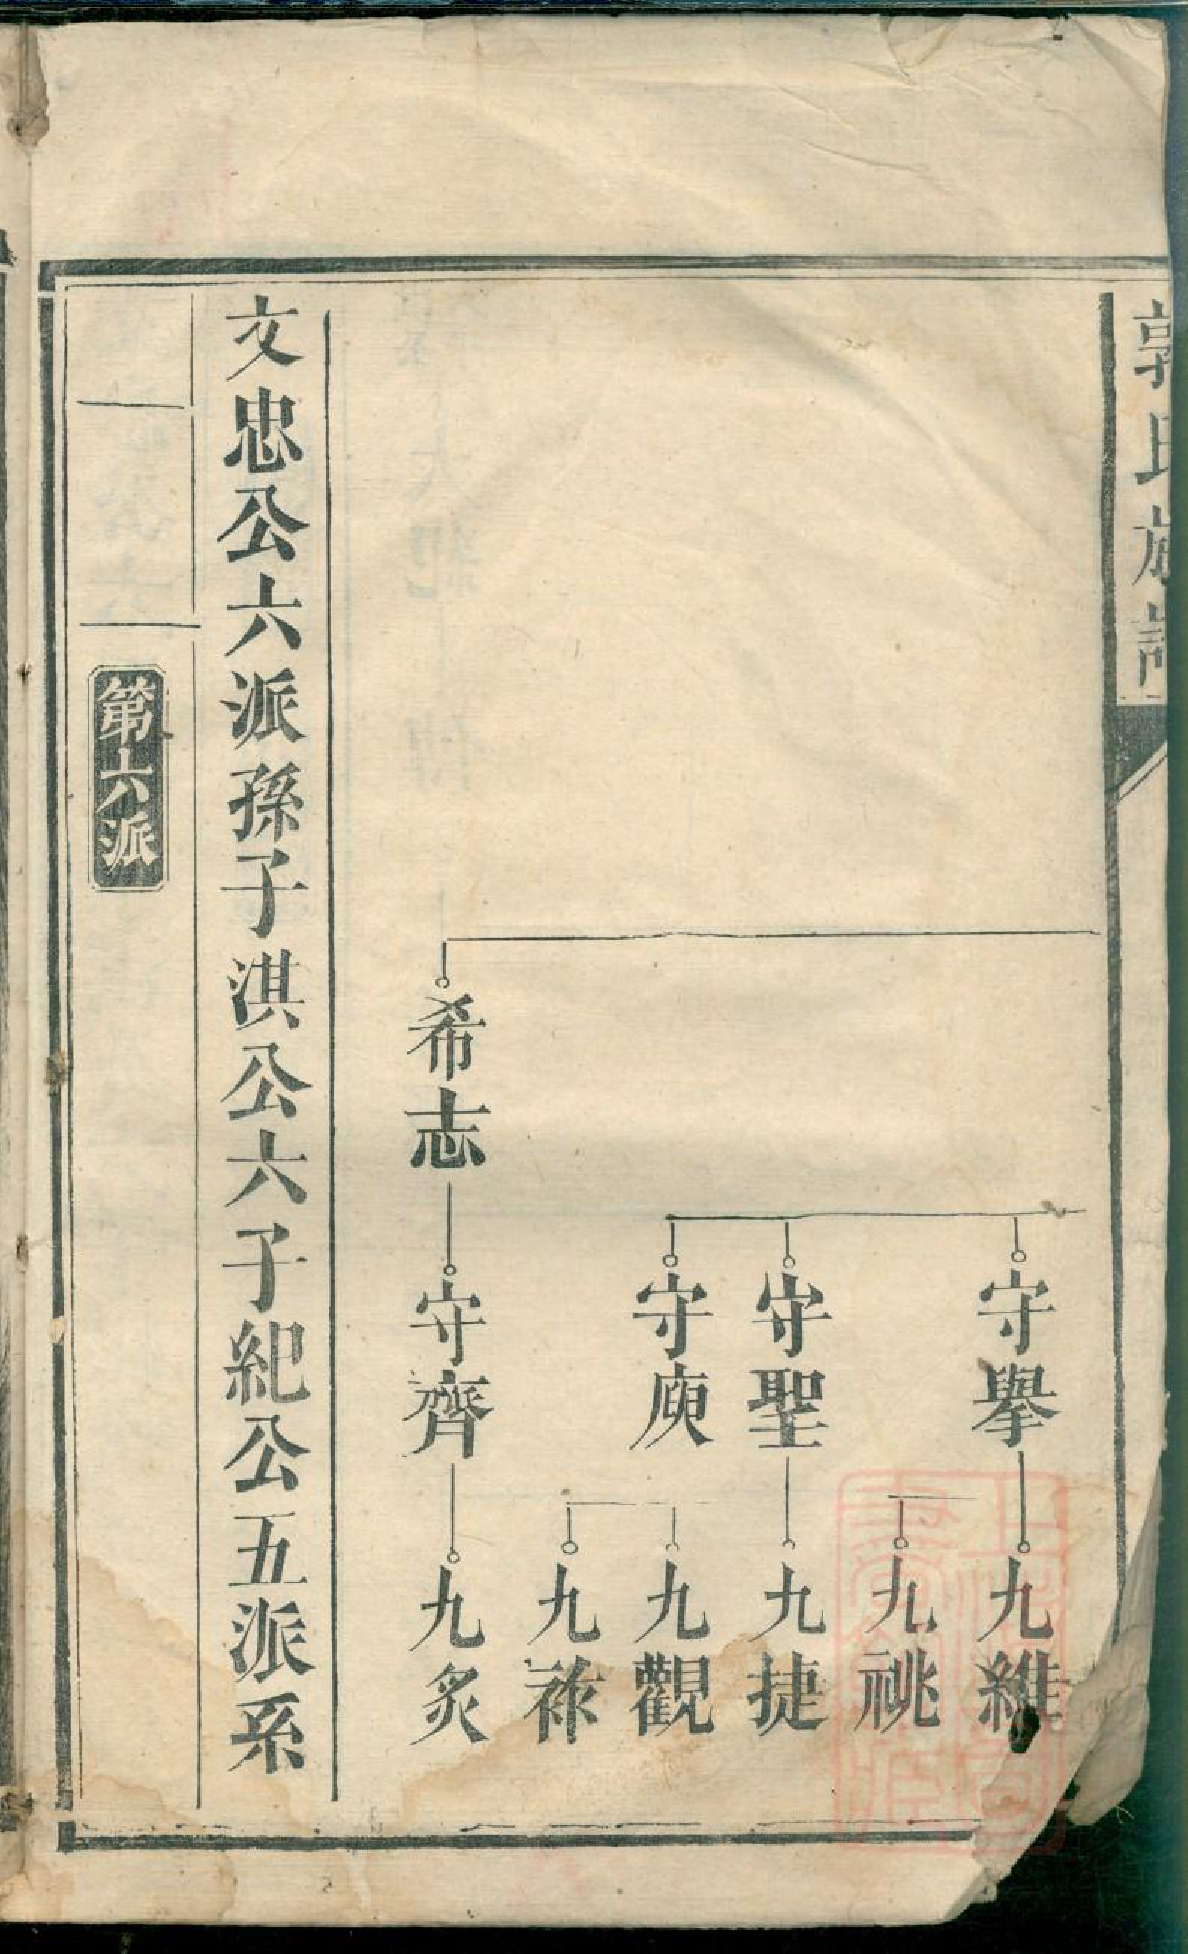 郭氏族譜
守舉
九維
九祧
守聖
九捷
守庾
九觀
九祿
希志
守齊
九炙
文忠公六派孫子淇公六子紀公五派系
第六派